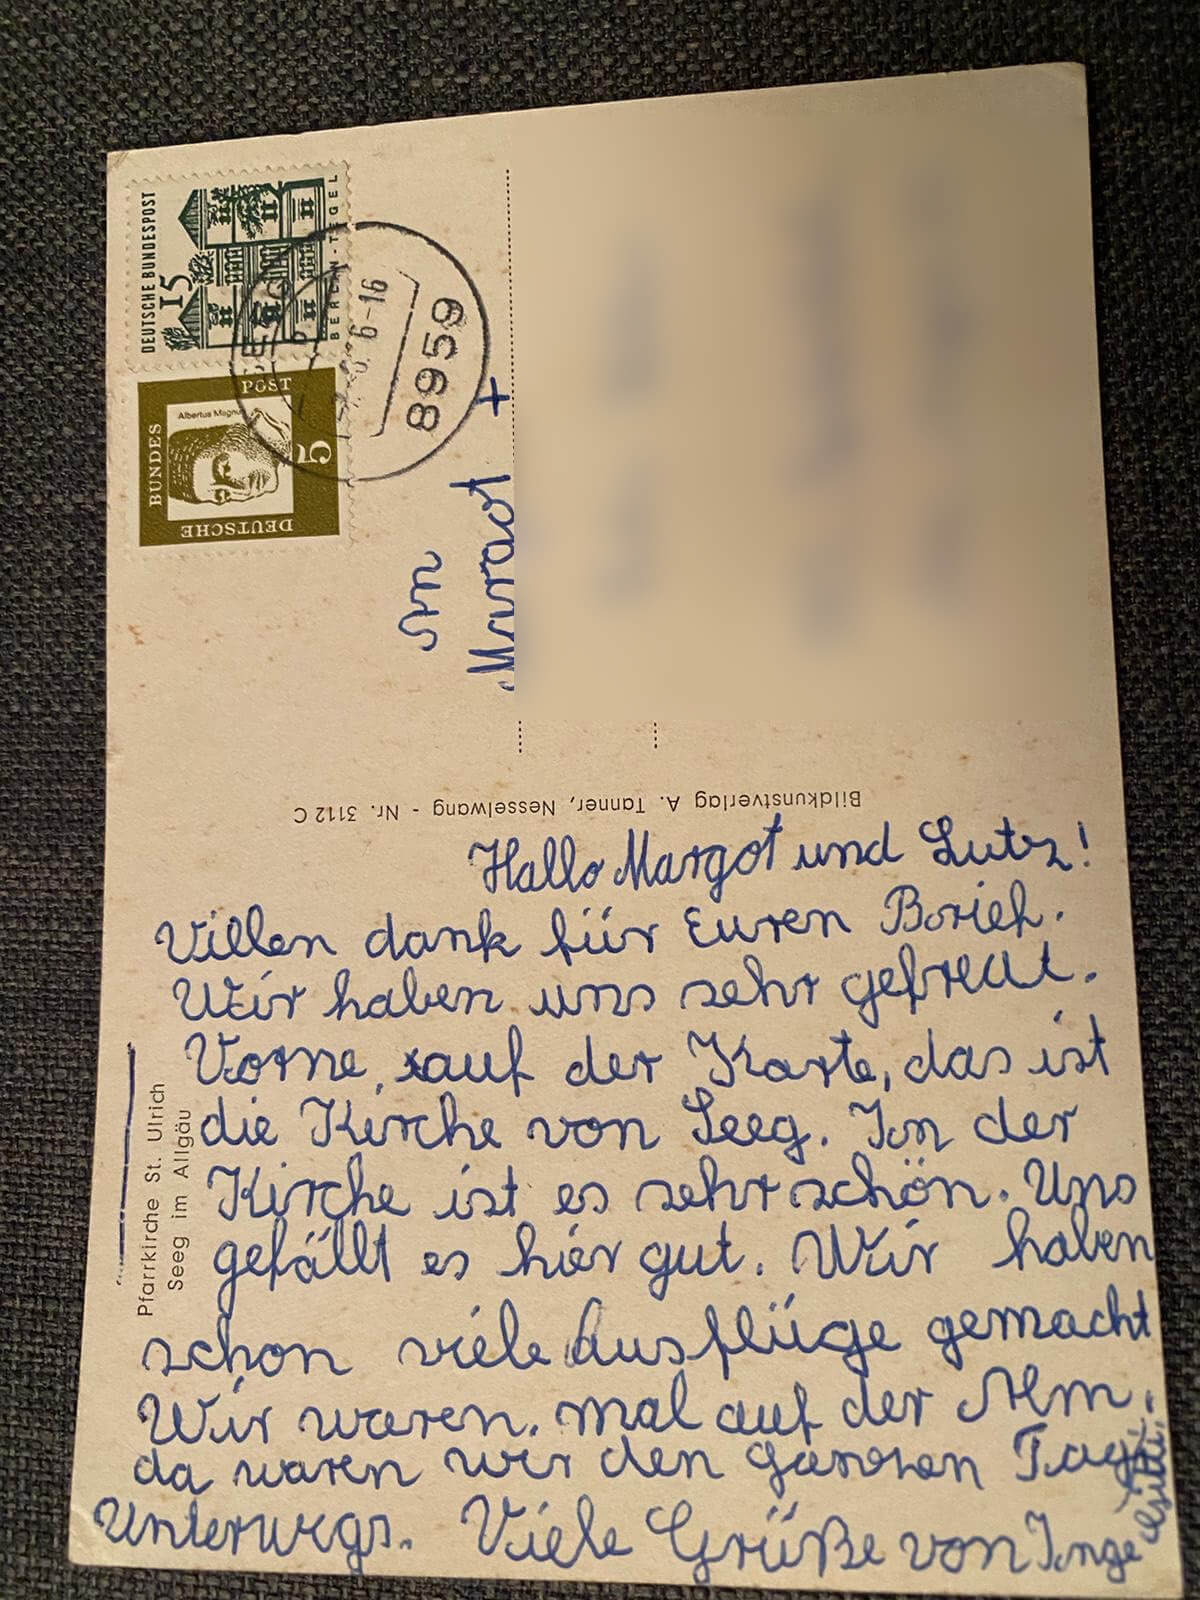 DEUTSCHE BUNDESPOST
15
BERLIN-TEGEL
DEUTSCHE
BUNDES
POST
Albertus Magnus
5
6-16
8959
An
Margot +
Bildkunstverlag A. Tanner, Nesselwang - Nr. 3112 C
Pfarrkirche St. Ulrich
Seeg im Allgäu
Hallo Margot und Lutz!
Villen dank für Euren Borief.
Wir haben uns sehr gefreut.
Vorne, auf der Karte, das ist
die Kirche von Seeg. In der
Kirche ist es sehr schön. Uns
gefällt es hier gut. Wir haben
schon viele Ausflüge gemacht
Wir waren. mal auf der Alm.
da waren wir den ganzen Tag
Unterwegs. Viele Grüße von Inge